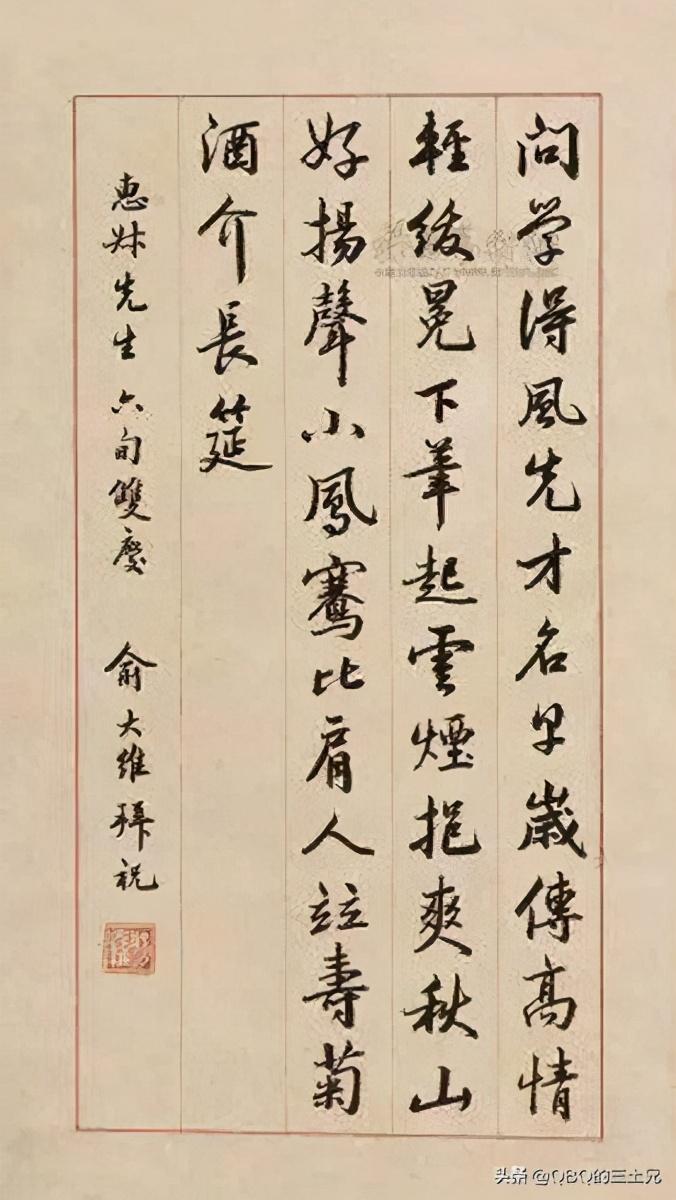 問学得風先才名早歲傳高情
輕紱冕下筆起雲煙挹爽秋山
好揚聲小鳳騫比肩人竝壽菊
酒介長筵
惠先生六旬雙慶 俞大維拜祝
头条 @QBQ的三土兄